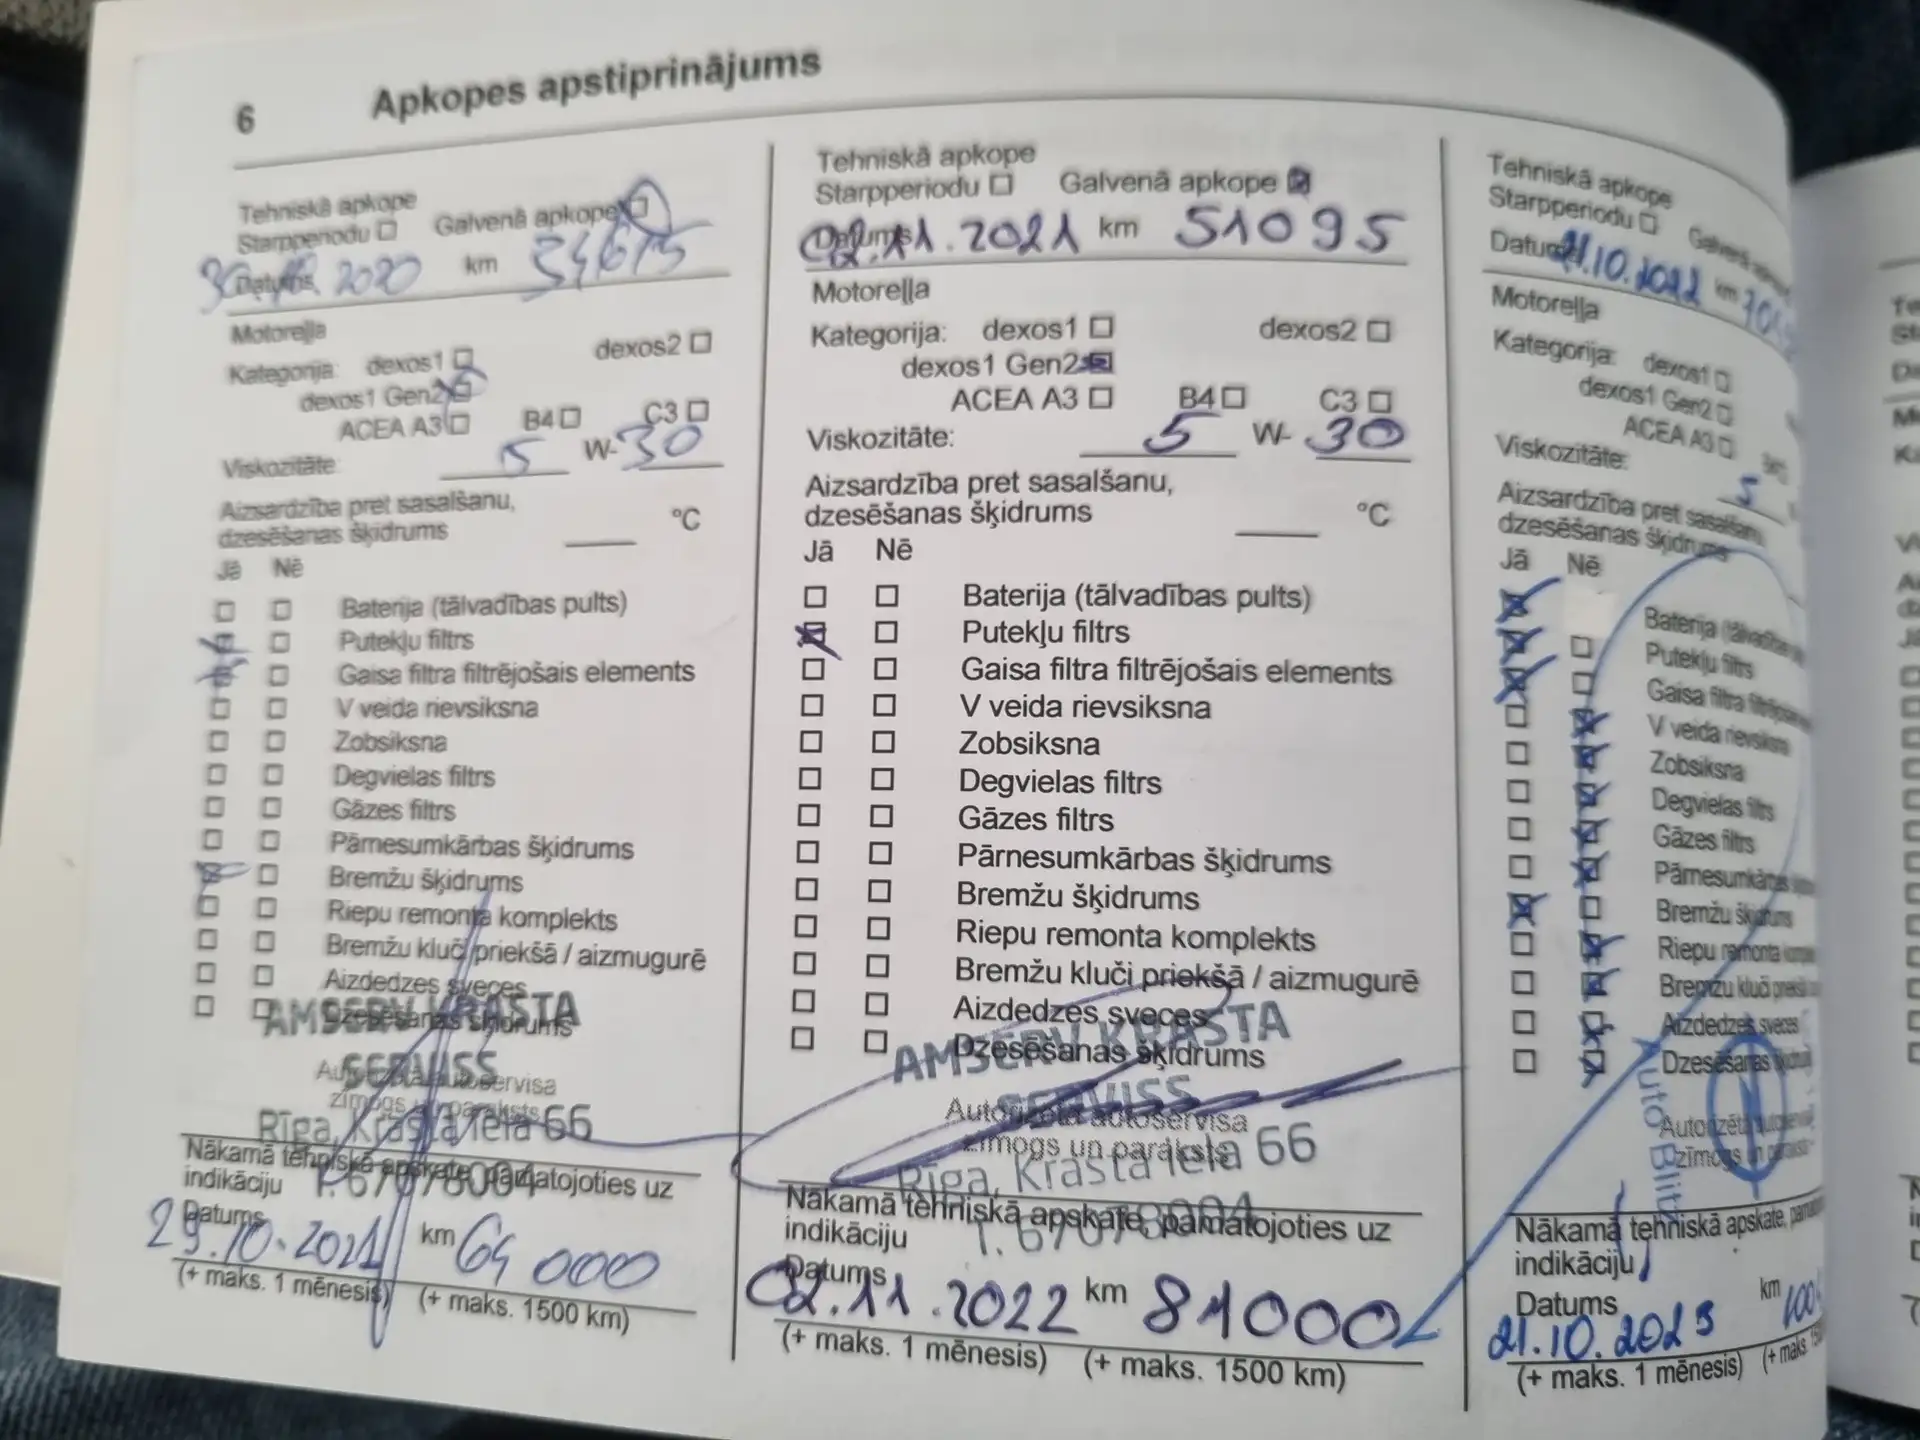 6 Apkopes apstiprinājums
Tehniskā apkope
Starpperiodu Galvenā apkope
Datums 2020 km 34675
Motoreļļa
Kategorija: dexos1 dexos2
dexos1 Gen2
ACEA A3 B4 C3
Viskozitāte: 5 W- 30
Aizsardzība pret sasalšanu,
dzesēšanas šķidrums °C
Jā Nē
Baterija (tālvadības pults)
Putekļu filtrs
Gaisa filtra filtrējošais elements
V veida rievsiksna
Zobsiksna
Degvielas filtrs
Gāzes filtrs
Pārnesumkārbas šķidrums
Bremžu šķidrums
Riepu remonta komplekts
Bremžu kluči priekšā / aizmugurē
Aizdedzes sveces
Dzesēšanas šķidrums
AMSERV KRASTA
SERVISS
Autorizētā autoservisa
zīmogs un paraksts
Rīga, Krasta iela 66
Nākamā tehniskā apskate, pamatojoties uz
indikāciju T. 67078004
Datums 29.10.2021 km 64 000
(+ maks. 1 mēnesis) (+ maks. 1500 km)
Tehniskā apkope
Starpperiodu Galvenā apkope
Datums 02.11.2021 km 51095
Motoreļļa
Kategorija: dexos1 dexos2
dexos1 Gen2
ACEA A3 B4 C3
Viskozitāte: 5 W- 30
Aizsardzība pret sasalšanu,
dzesēšanas šķidrums °C
Jā Nē
Baterija (tālvadības pults)
Putekļu filtrs
Gaisa filtra filtrējošais elements
V veida rievsiksna
Zobsiksna
Degvielas filtrs
Gāzes filtrs
Pārnesumkārbas šķidrums
Bremžu šķidrums
Riepu remonta komplekts
Bremžu kluči priekšā / aizmugurē
Aizdedzes sveces
Dzesēšanas šķidrums
AMSERV KRASTA
SERVISS
Autorizētā autoservisa
zīmogs un paraksts
Rīga, Krasta iela 66
Nākamā tehniskā apskate, pamatojoties uz
indikāciju T. 67078004
Datums 02.11.2022 km 81000
(+ maks. 1 mēnesis) (+ maks. 1500 km)
Tehniskā apkope
Starpperiodu Galvenā
Datums 21.10.2022 km
Motoreļļa
Kategorija: dexos1
dexos1 Gen2
ACEA A3
Viskozitāte: 5
Aizsardzība pret sasalšanu,
dzesēšanas šķidrums
Jā Nē
Baterija
Putekļu filtrs
Gaisa filtra
V veida rievsiksna
Zobsiksna
Degvielas filtrs
Gāzes filtrs
Pārnesumkārbas
Bremžu šķidrums
Riepu remonta
Bremžu kluči
Aizdedzes sveces
Dzesēšanas
Auto Blitz
Autorizētā
zīmogs un
Nākamā tehniskā apskate,
indikāciju
Datums 21.10.2023 km
(+ maks. 1 mēnesis) (+ maks.